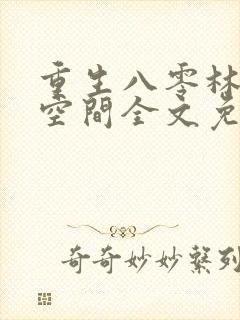 重生八零林
空間全文免
奇奇妙妙繫列